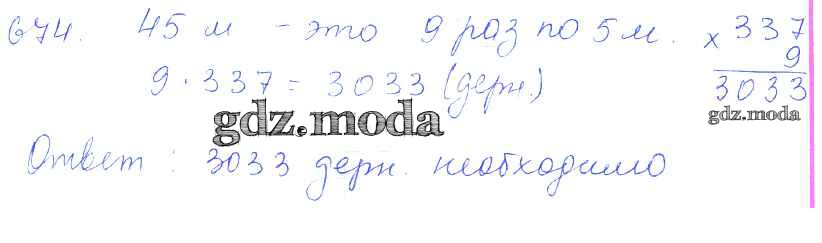 674. 45 м - это 9 раз по 5 м. × 337
9
9 · 337 = 3033 (дерн.) 3033
gdz.moda
gdz.moda
Ответ : 3033 дерн. необходимо